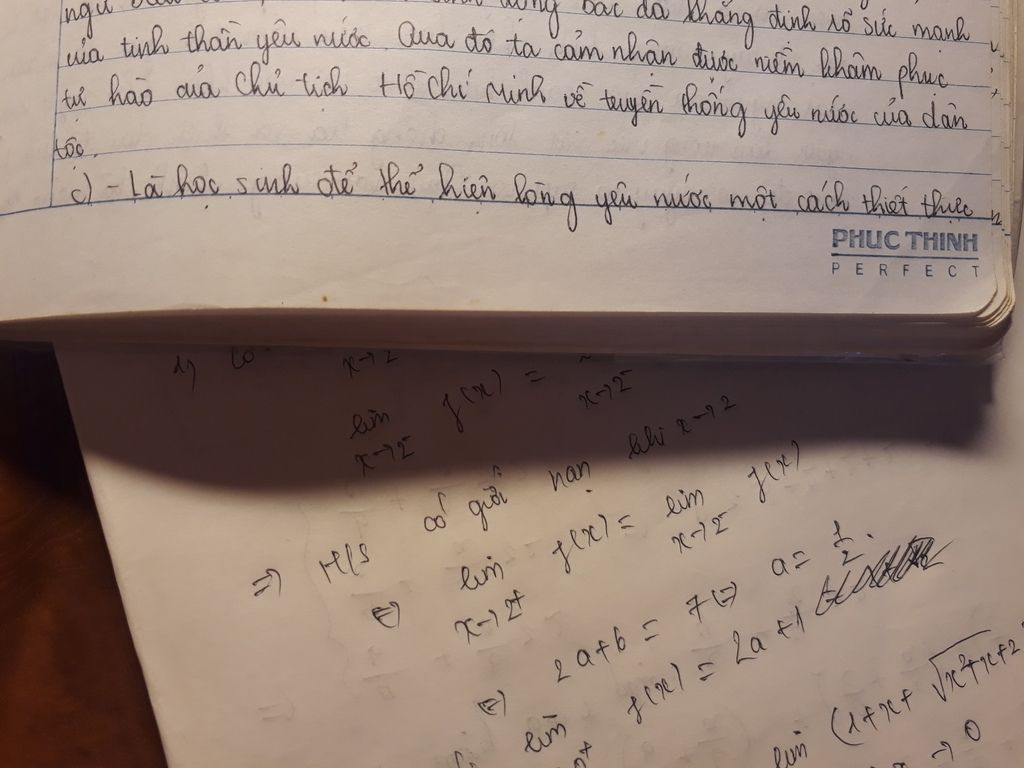 của tinh thần yêu nước Qua đó ta cảm nhận được niềm khâm phục
tự hào của Chủ tịch Hồ Chí Minh về truyền thống yêu nước của dân
tộc.
c) - Là học sinh để thể hiện lòng yêu nước một cách thiết thực
PHUC THINH
PERFECT
x→2
lim f(x) =
x→2⁻ x→2⁻
=> H/s có giới hạn khi x→2
<=> lim f(x) = lim f(x)
x→2⁺ x→2⁻
<=> 2a+6 = 7 <=> a = 1/2.
lim f(x) = 2a+1
lim (1+x+√x²+x+2
x→0